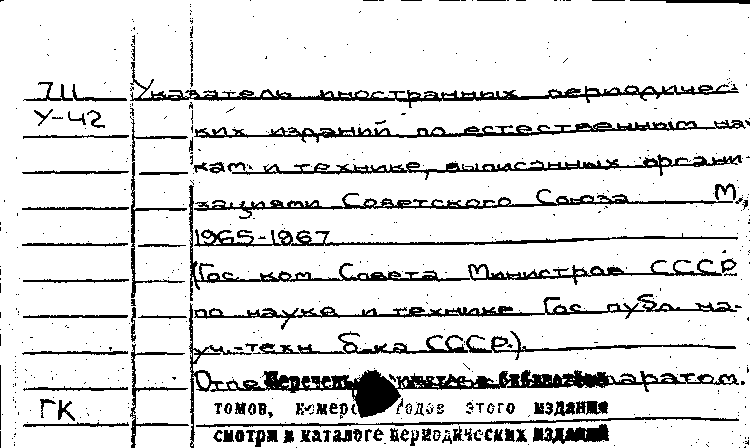 711 Указатель иностранных периодичес-
У-42 ких изданий по естественным нау-
кам и технике, выписанных органи-
зациями Советского Союза М.,
1965-1967
(Гос ком Совета Министров СССР
по науке и технике. Гос публ. на-
уч.-техн б-ка СССР.).
Перечень в библиотеке
ГК томов, номеров годов этого издания
смотри в каталоге периодических изданий